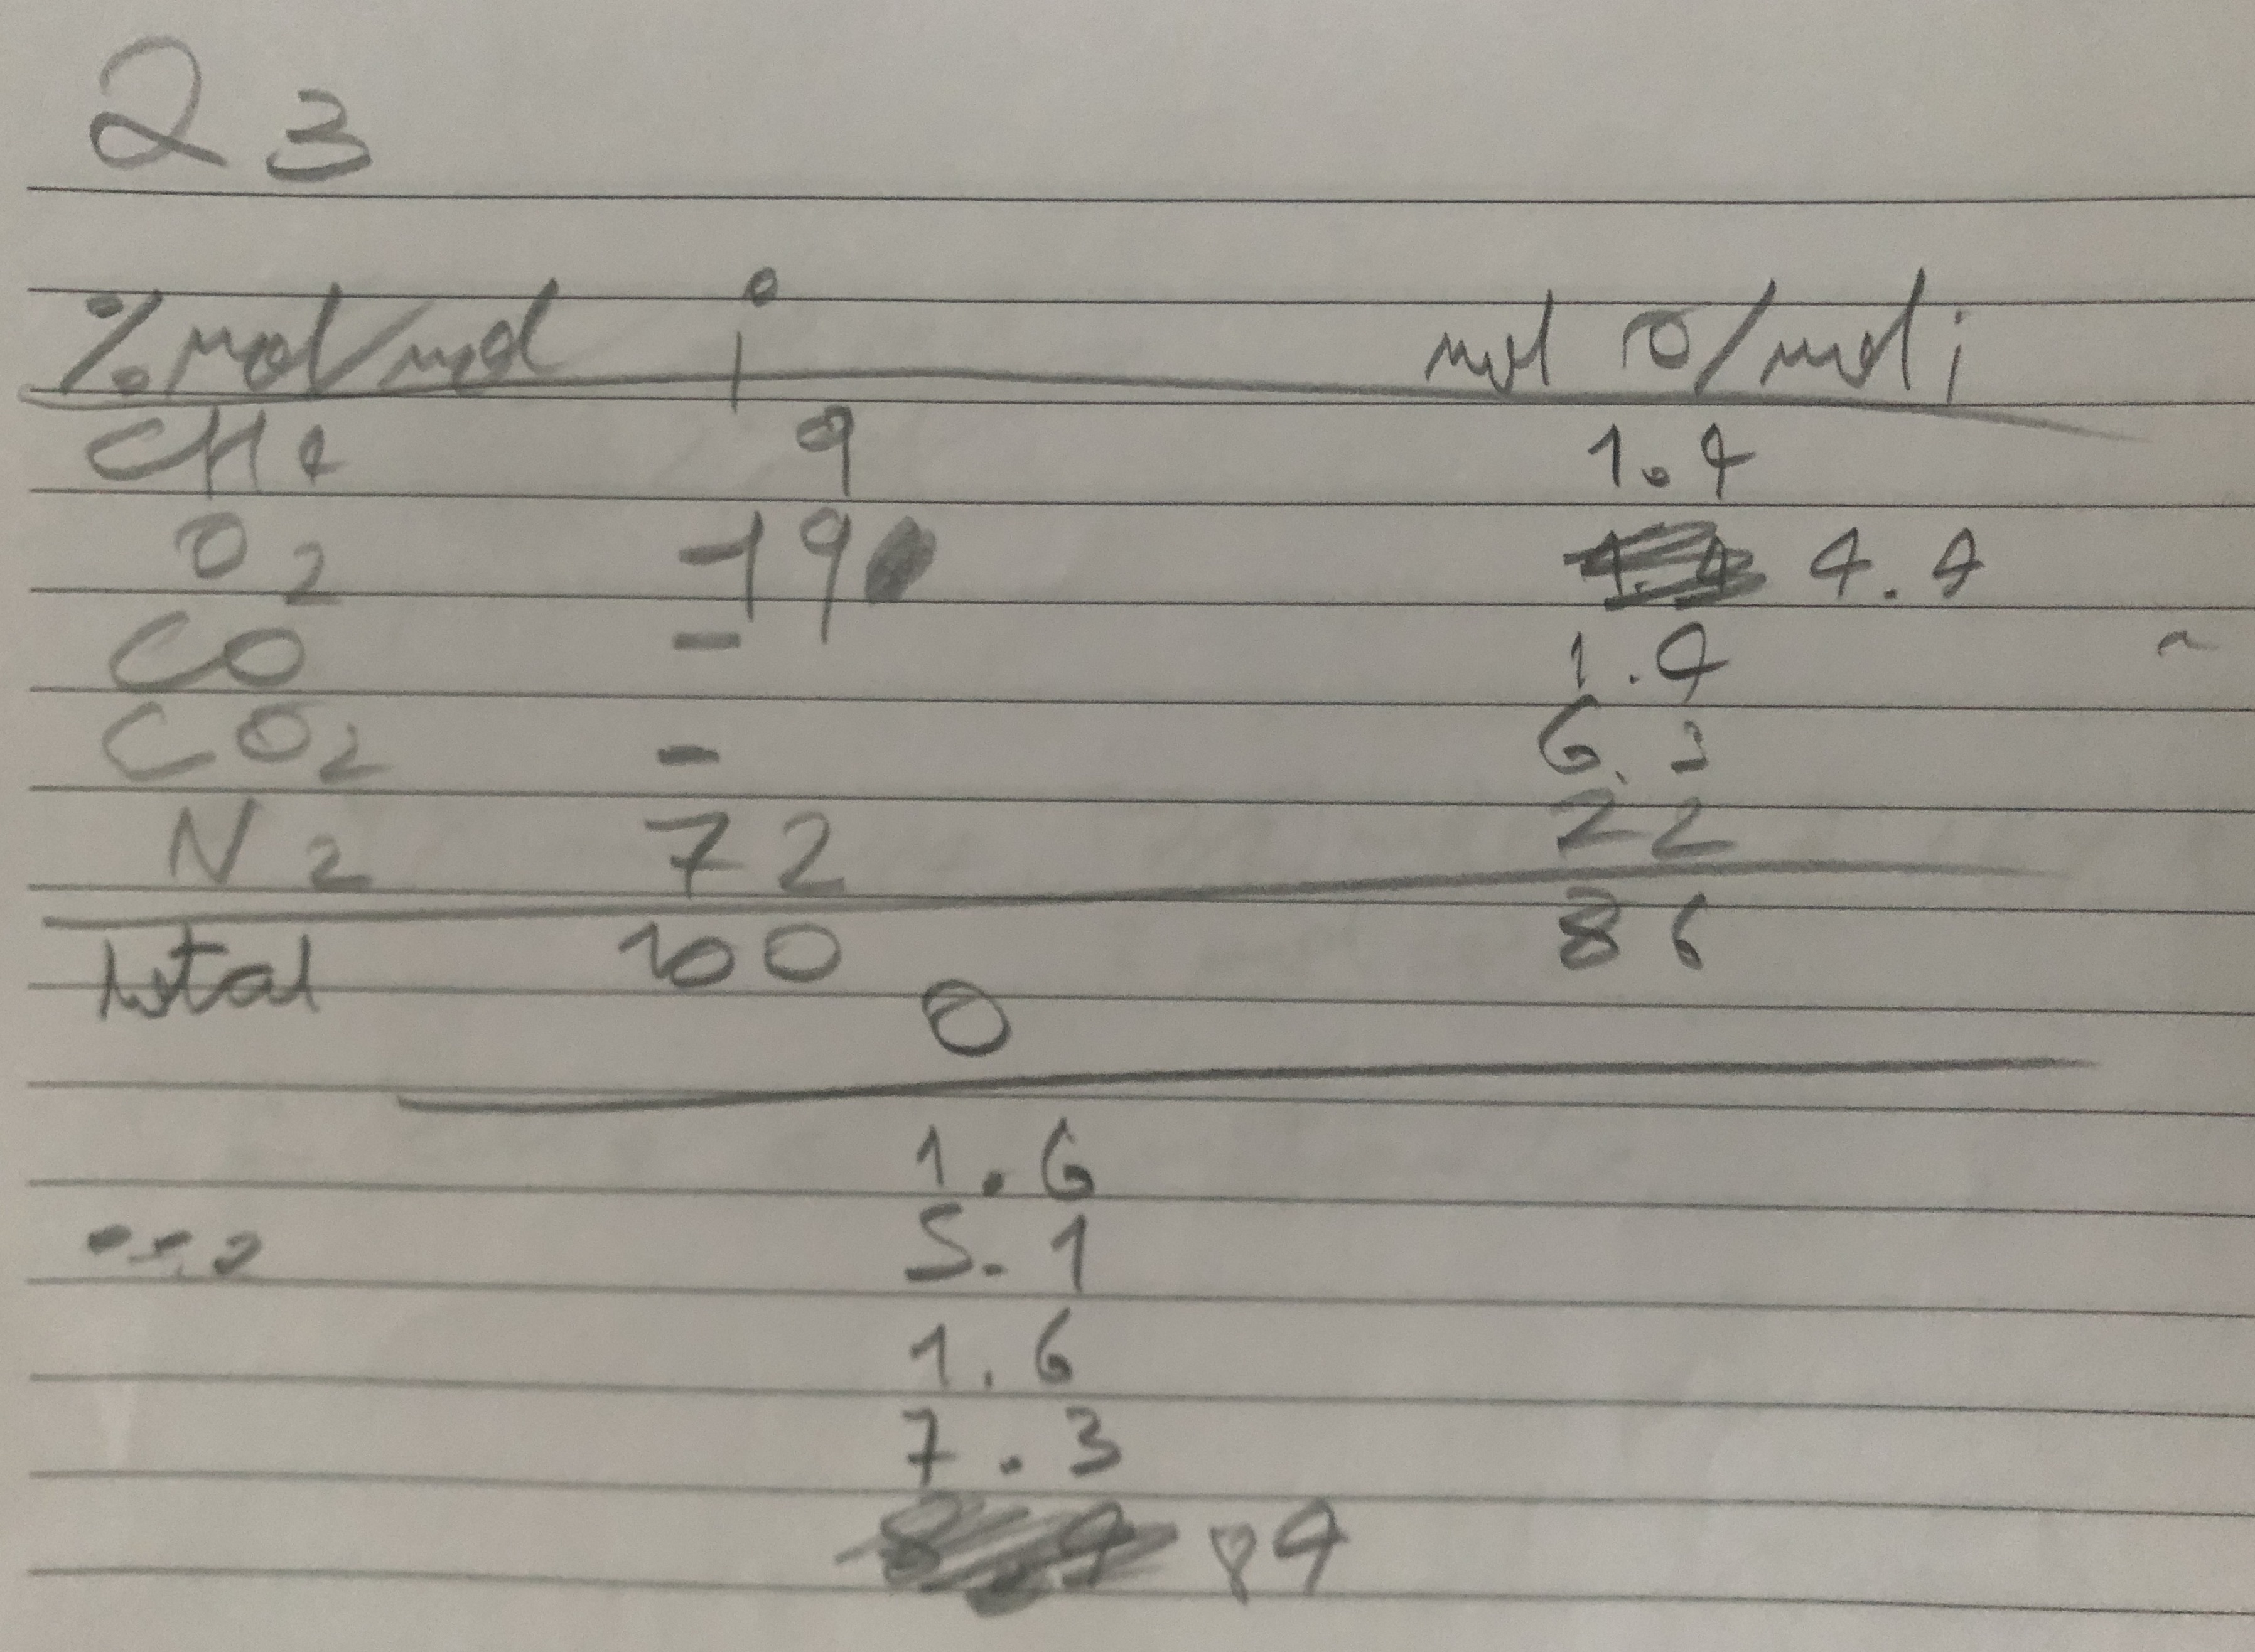 23
% mol/mol i mol o/mol i
CH4 9 1.4
O2 19 4.4
CO - 1.4
CO2 - 6.3
N2 72 22
total 100 86
O
1.6
5.1
1.6
7.3
84